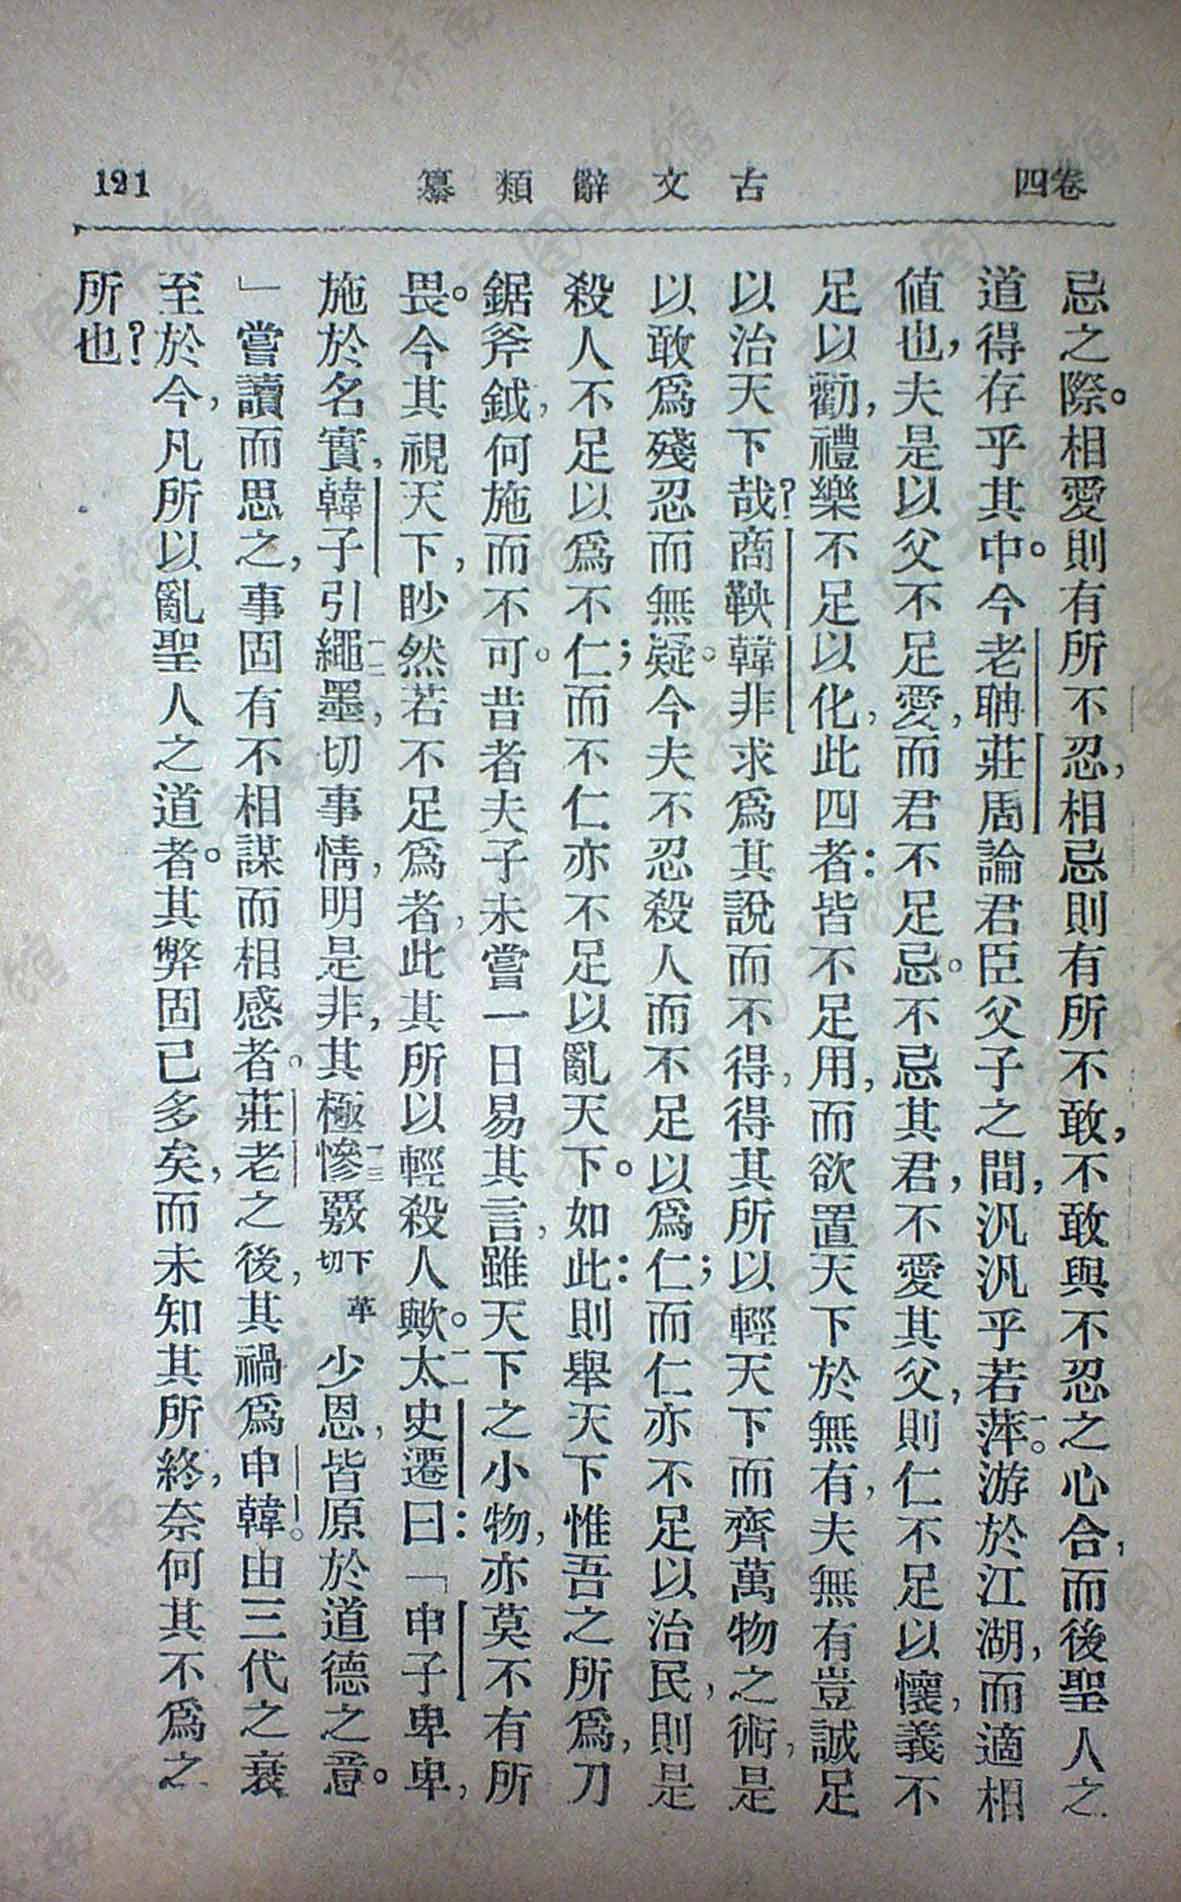 卷四
古文辭類纂
121
忌之際。相愛則有所不忍，相忌則有所不敢，不敢與不忍之心合，而後聖人之
道得存乎其中。今老聃莊周論君臣父子之間，汎汎乎若萍一。游於江湖，而適相
値也，夫是以父不足愛，而君不足忌。不忌其君，不愛其父，則仁不足以懷，義不
足以勸，禮樂不足以化，此四者：皆不足用，而欲置天下於無有，夫無有豈誠足
以治天下哉？商鞅韓非求爲其說而不得，得其所以輕天下而齊萬物之術，是
以敢爲殘忍而無疑。今夫不忍殺人而不足以爲仁；而仁亦不足以治民，則是
殺人不足以爲不仁；而不仁亦不足以亂天下。如此：則舉天下惟吾之所爲，刀
鋸斧鉞，何施而不可。昔者夫子未嘗一日易其言，雖天下之小物，亦莫不有所
畏。今其視天下，眇然若不足爲者，此其所以輕殺人歟。太一一史遷曰：「申子卑卑，
施於名實，韓子引繩一二墨，切事情，明是非，其極慘一三覈下革切少恩，皆原於道德之意。
」嘗讀而思之，事固有不相謀而相感者。莊老之後，其禍爲申韓。由三代之衰
至於今，凡所以亂聖人之道者。其弊固已多矣，而未知其所終，奈何其不爲之
所也？